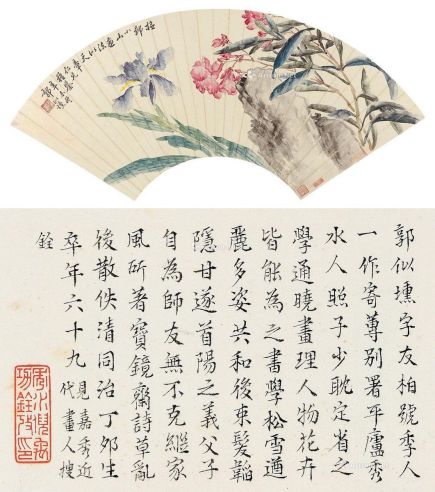 鄒小山畫法以
天章
仁兄
郭似壎字友柏號季人
一作寄尊别署平廬秀
水人照子少耽定省之
學通曉畫理人物花卉
皆能為之書學松雪遒
麗多姿共和後束髮韜
隱甘遂首陽之義父子
自為師友無不克繼家
風所著寶鏡齋詩草亂
後散佚清同治丁卯生
卒年六十九見嘉秀近代畫人搜
銓